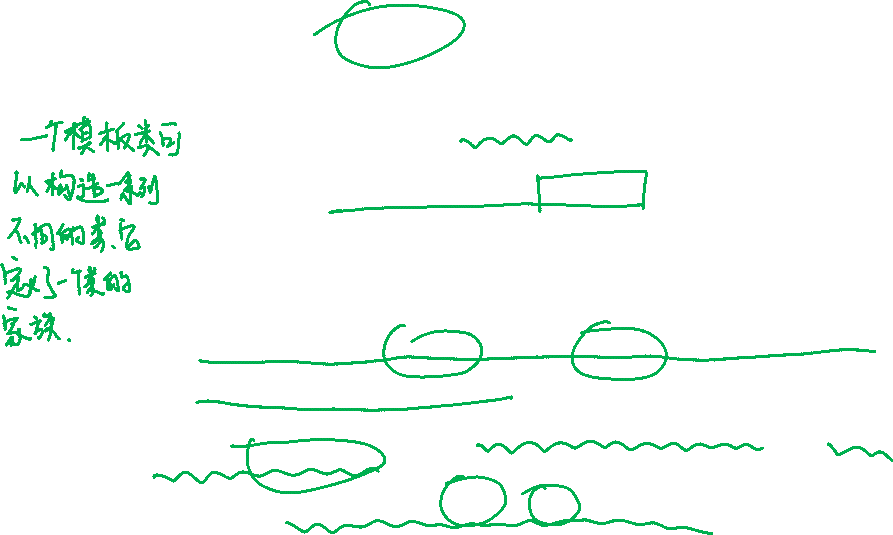 一个模板类可
以构造一系列
不同的类、它
定义了一个类的
家族.